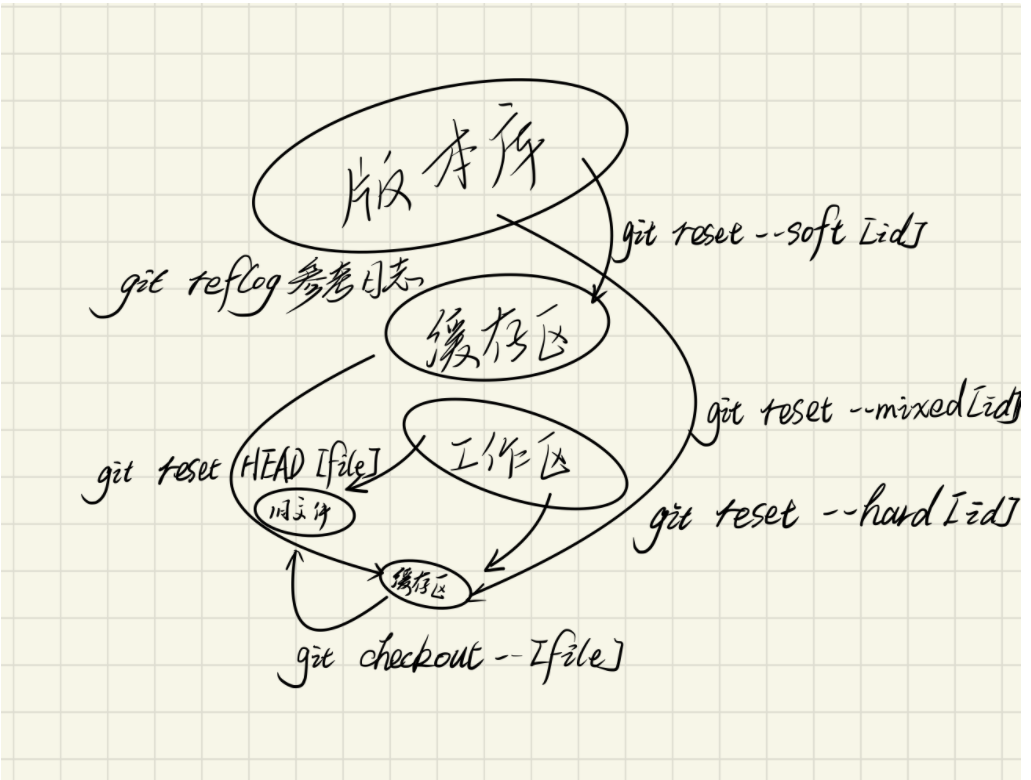 版本库
git reset --soft [id]
git reflog 参考日志
缓存区
git reset --mixed [id]
工作区
git reset HEAD [file]
旧文件
git reset --hard [id]
缓存区
git checkout -- [file]